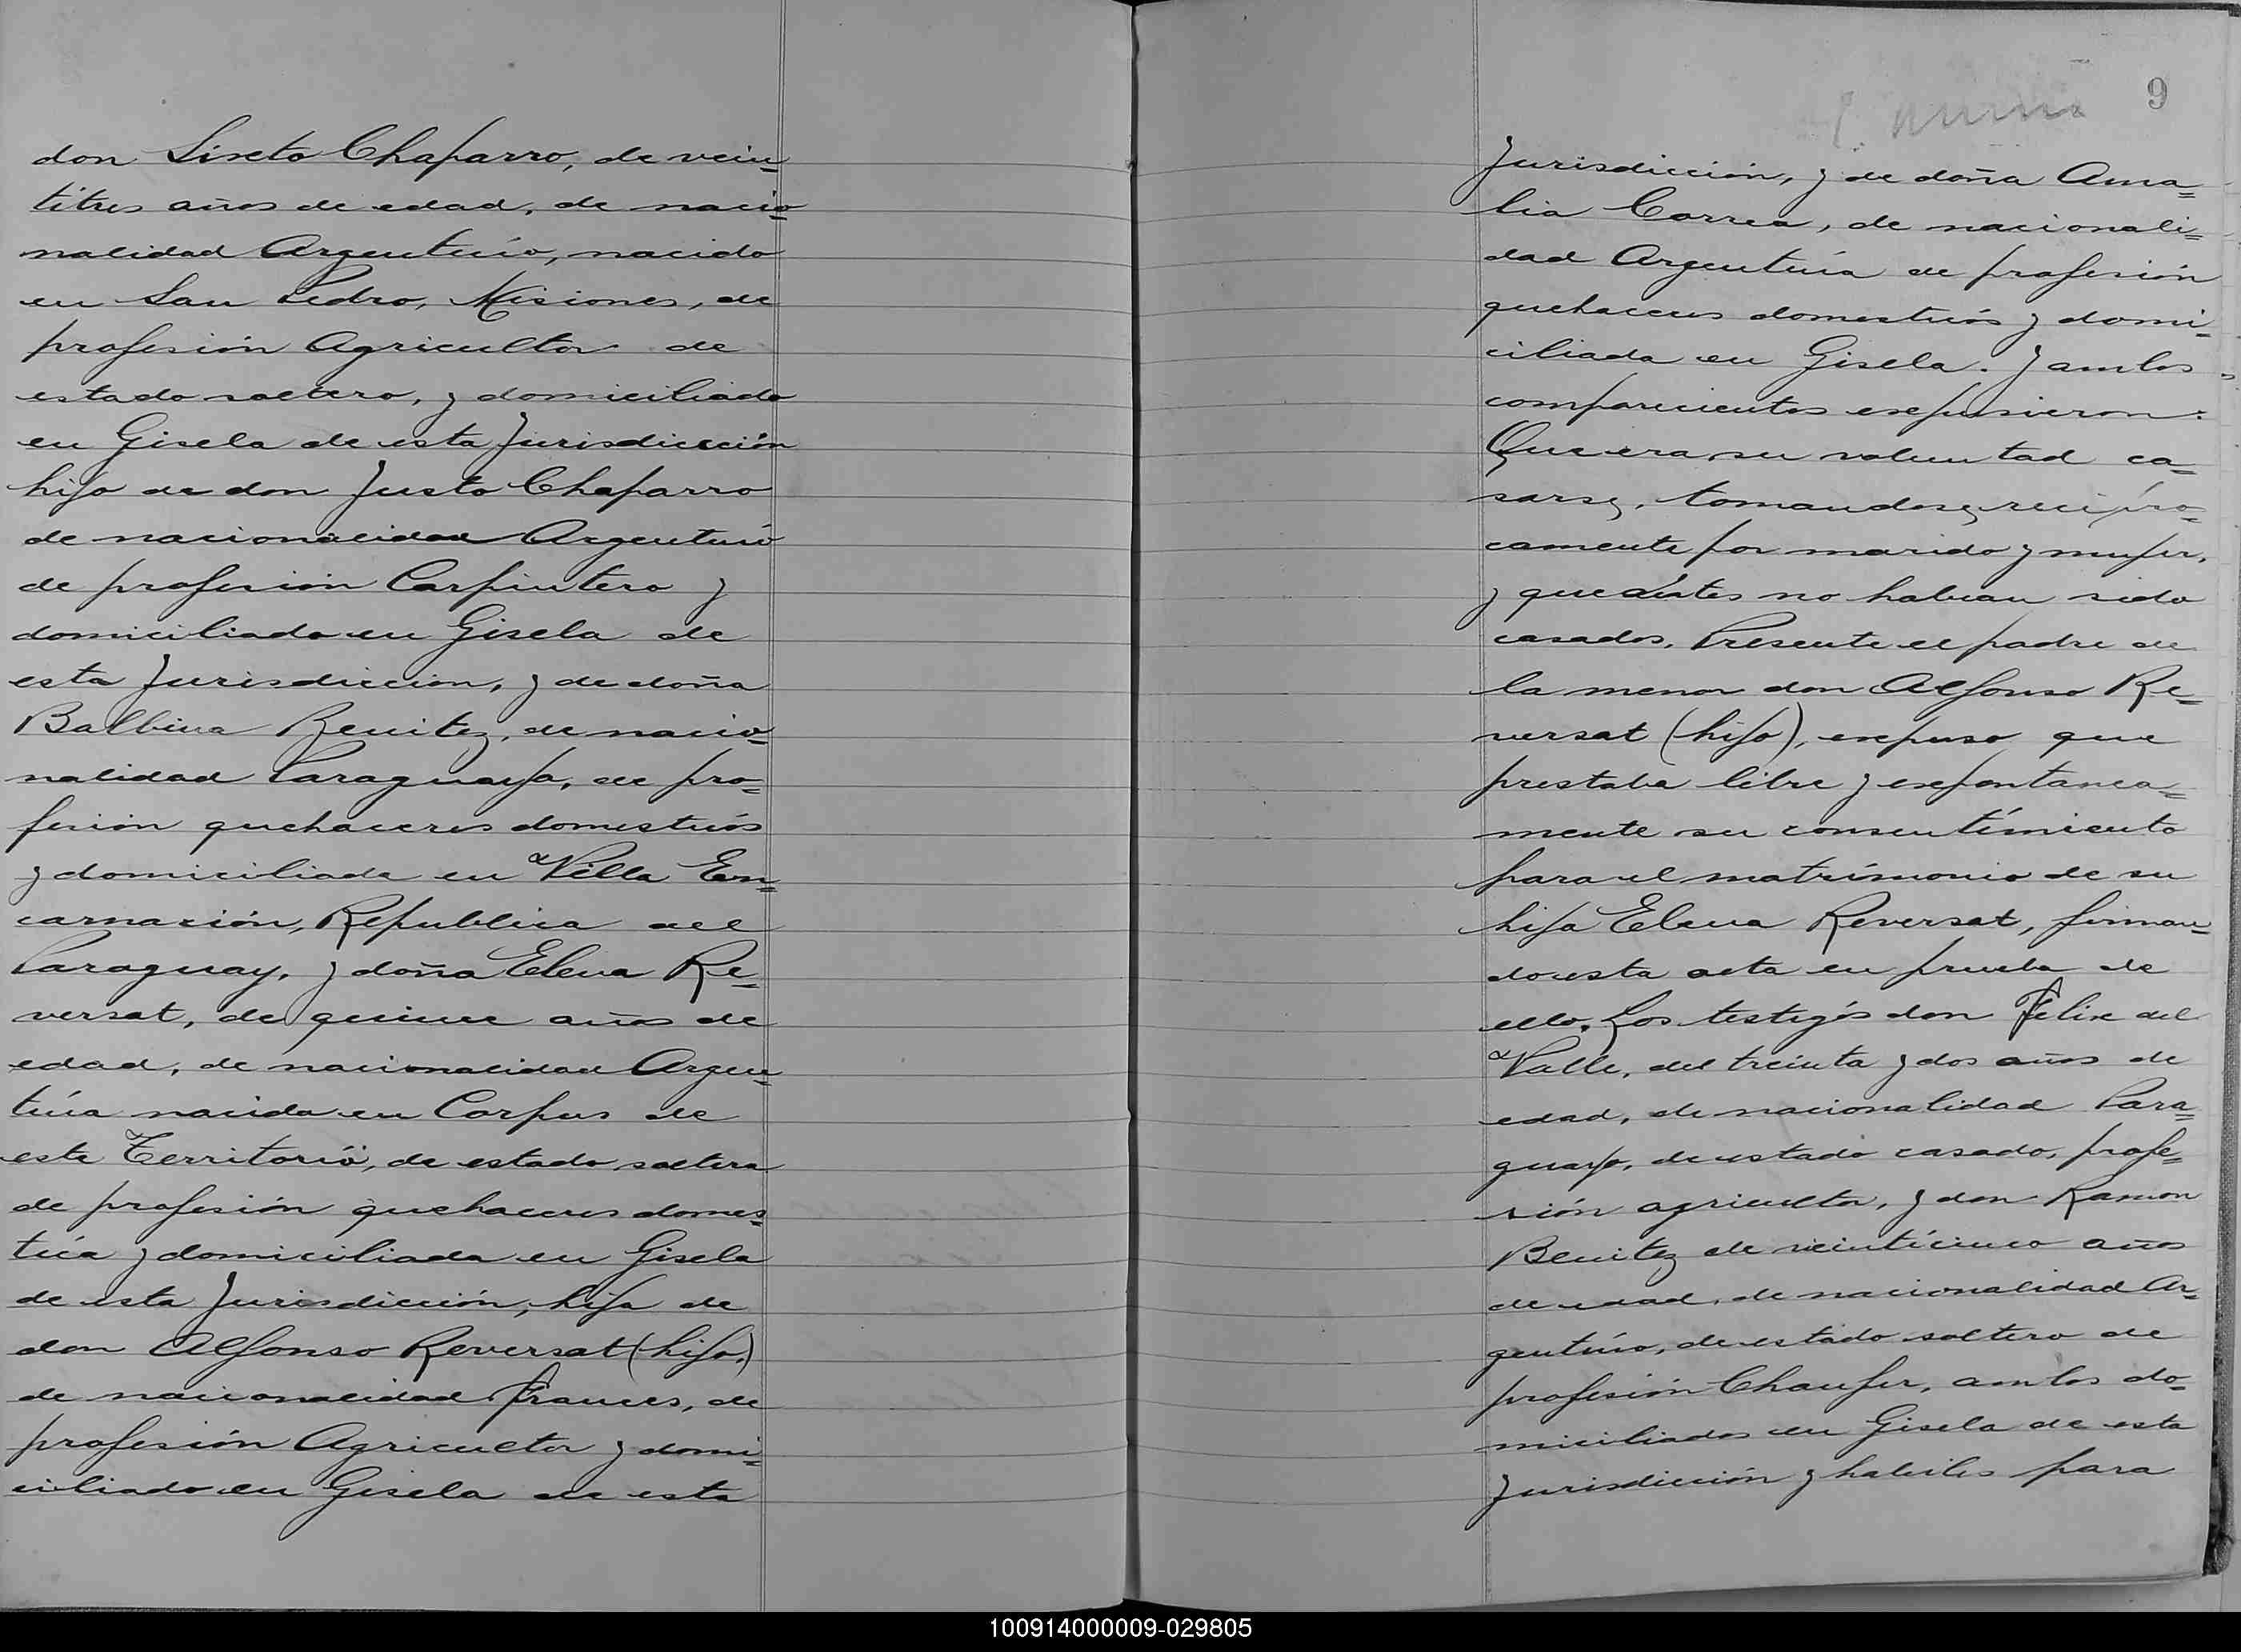 don Sixto Chaparro, de vein-
titres años de edad, de nacio-
nalidad Argentino, nacido
en San Pedro, Misiones, de
profesión Agricultor de
estado soltero, y domiciliado
en Gisela de esta Jurisdicción
hijo de don Justo Chaparro
de nacionalidad Argentino
de profesión Carpintero y
domiciliado en Gisela de
esta Jurisdiccion, y de doña
Balbina Benitez, de nacio-
nalidad Paraguaya, de pro-
fesión quehaceres domesticos
y domiciliada en Villa En-
carnación, Republica del
Paraguay, y doña Elena Re-
versat, de quince años de
edad, de nacionalidad Argen-
tina nacida en Corpus de
este Territorio, de estado soltera
de profesión quehaceres domes-
tica y domiciliada en Gisela
de esta Jurisdicción, hija de
don Alfonso Reversat (hijo)
de nacionalidad Frances, de
profesión Agricultor y domi-
ciliado en Gisela de esta
9
Jurisdicción, y de doña Ama-
lia Correa, de nacionali-
dad Argentina de profesión
quehaceres domesticos y domi-
ciliada en Gisela. Y ambos
comparecientes expusieron:
Que era su voluntad ca-
sarse, tomandose recipro-
camente por marido y mujer,
y que antes no habian sido
casados. Presente el padre de
la menor don Alfonso Re-
versat (hijo), expuso que
prestaba libre y expontanea-
mente su consentimiento
para el matrimonio de su
hija Elena Reversat, firman-
do esta acta en prueba de
ello. Los testigos don Felix del
Valle, del treinta y dos años de
edad, de nacionalidad Para-
guayo, de estado casado, profe-
sión agricultor, y don Ramon
Benitez de veinticinco años
de edad, de nacionalidad Ar-
gentino, de estado soltero de
profesión Chaufer, ambos do-
miciliados en Gisela de esta
Jurisdicción y habiles para
100914000009-029805